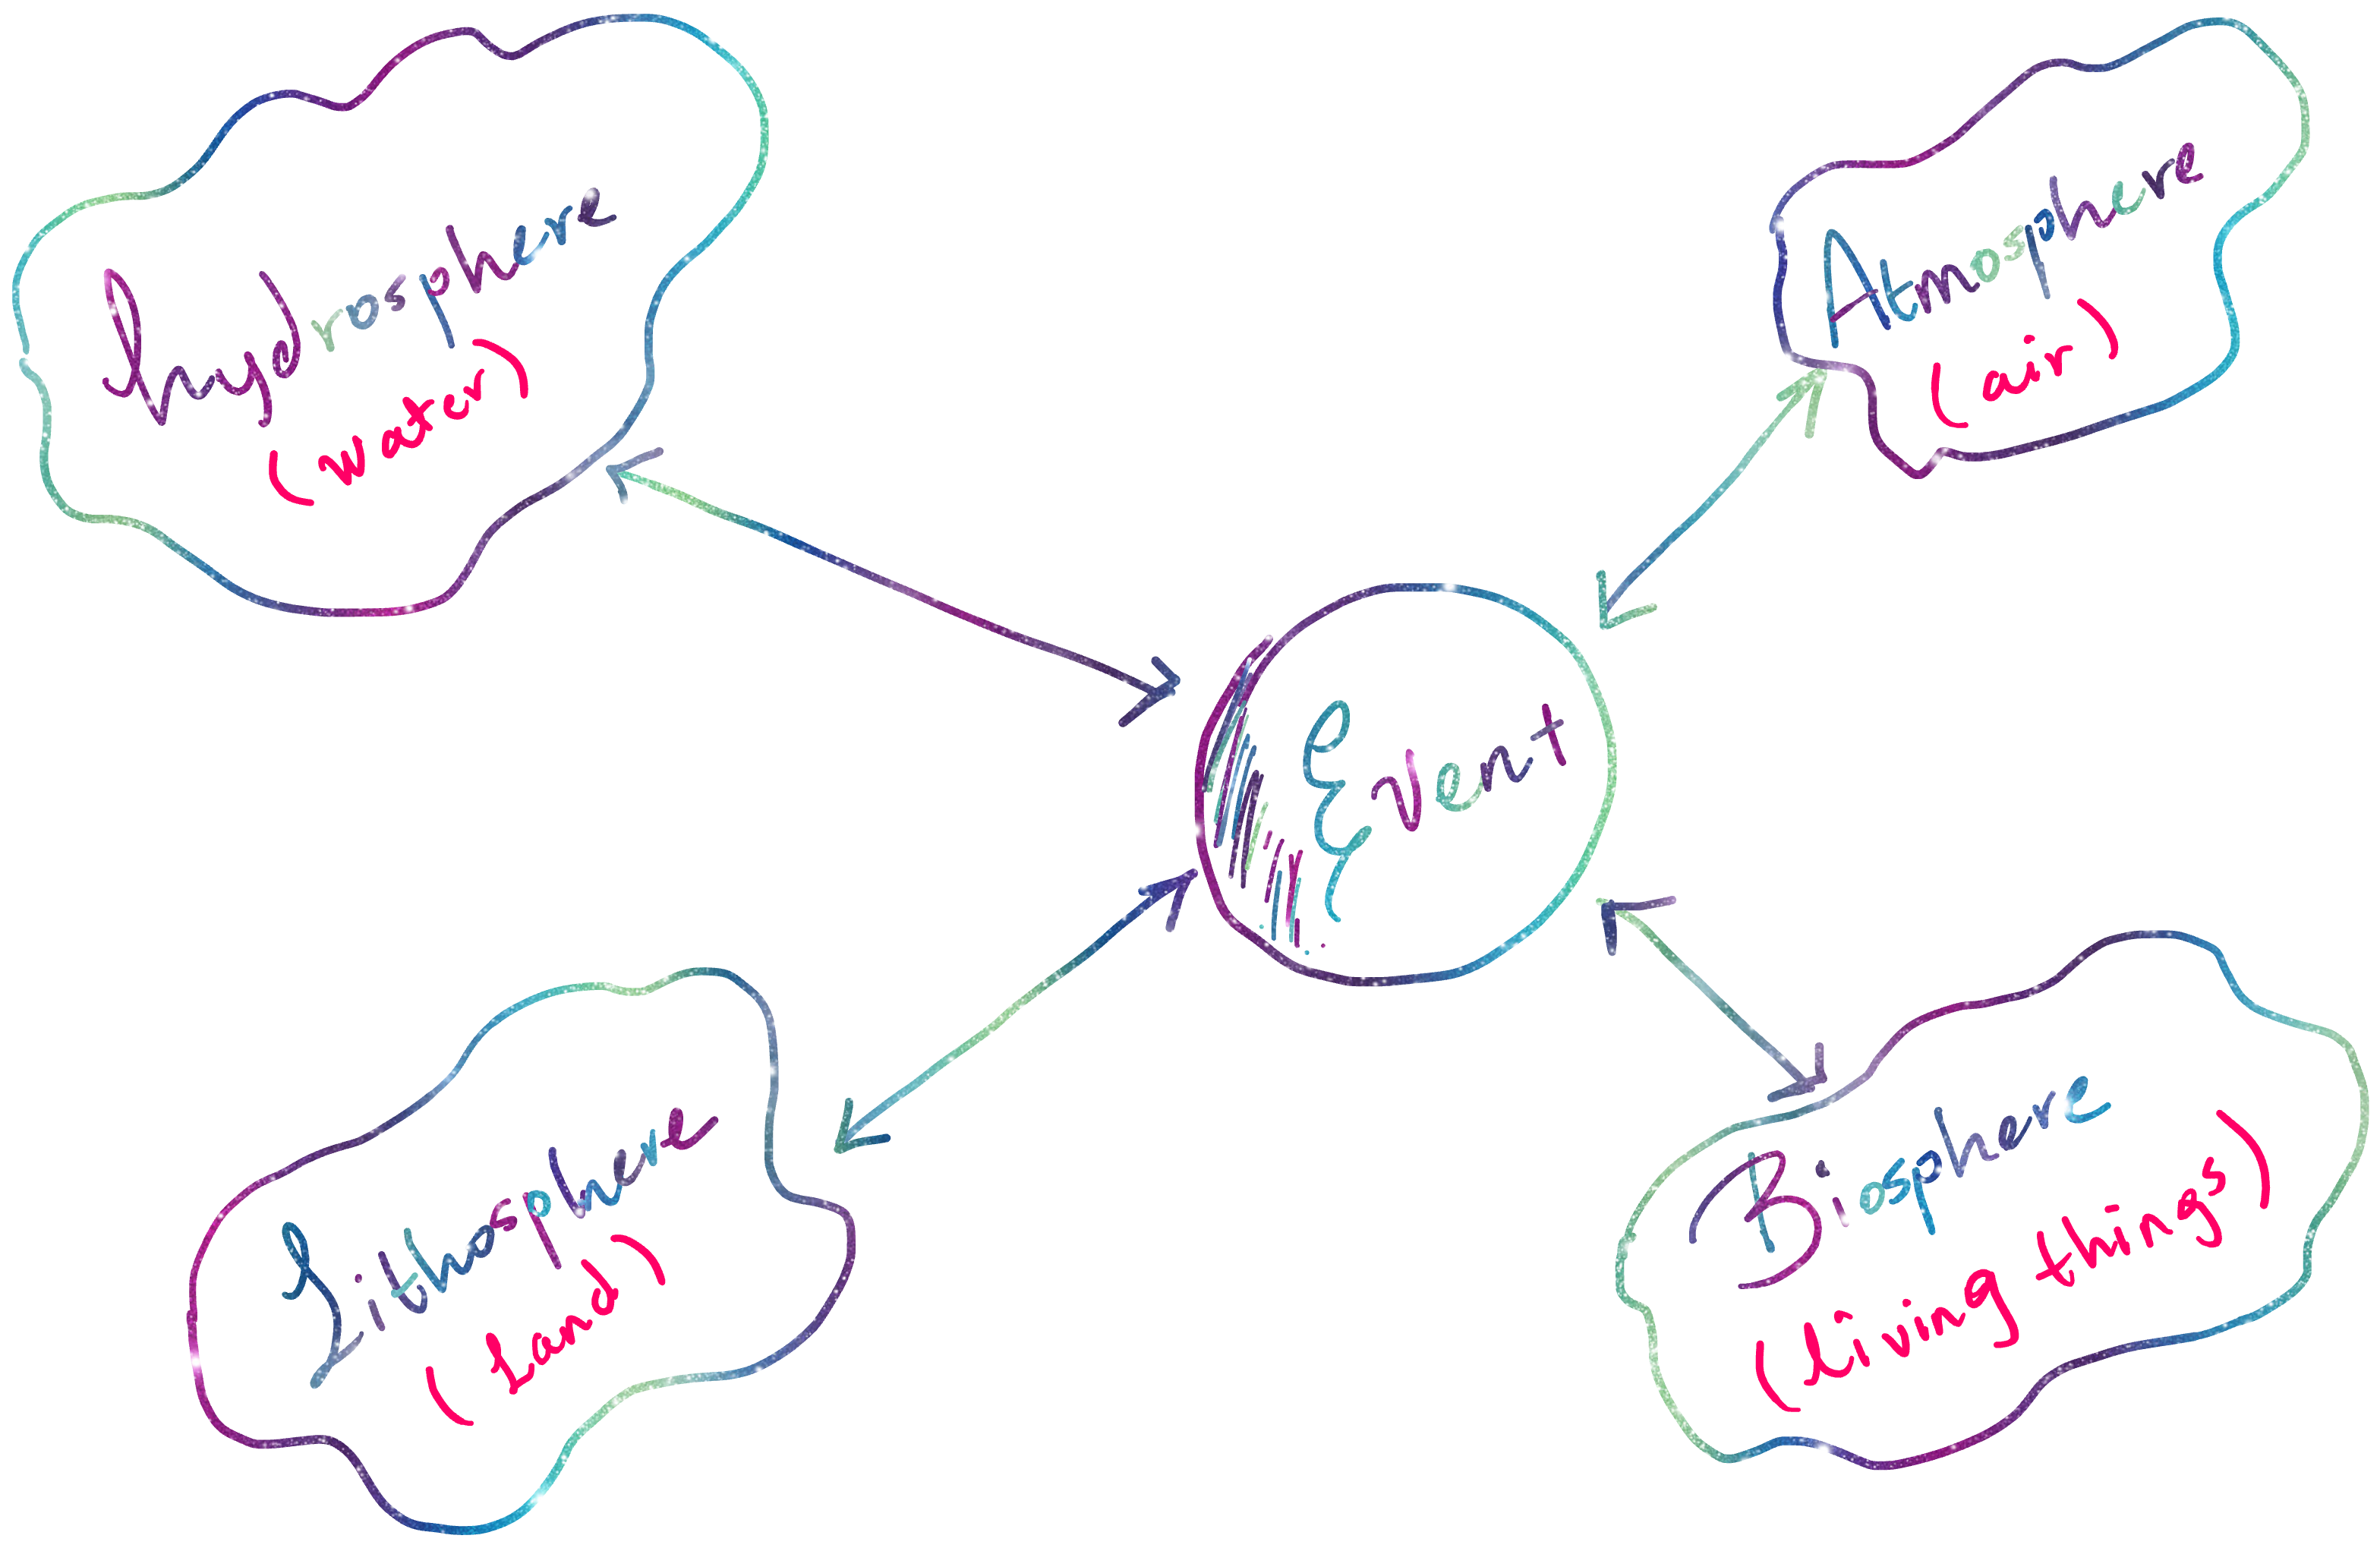 hydrosphere
(water)
Atmosphere
(air)
Event
Lithosphere
(Land)
Biosphere
(living things)